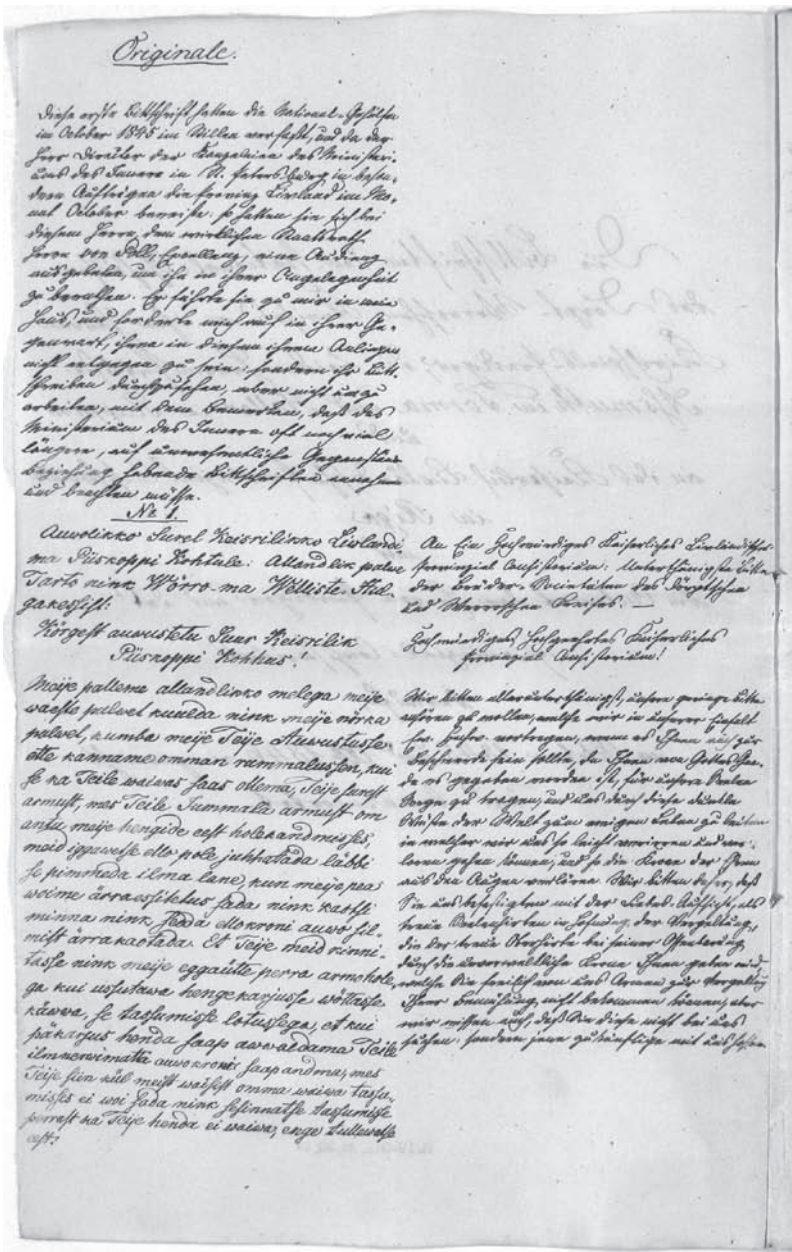 Originale.
Diese erste Bittschrift hatten die National-Gehülfen
im October 1845 im Stillen verfaßt, und da der
Herr Director der Kanzeleien des Ministeri-
ums des Innern in St. Petersburg in beson-
dern Aufträgen die Provinz Livland im Mo-
nat October bereiste, so hatten sie sich bei
diesem Herrn, dem wirklichen Staatsrath
Herrn von Poll, Excellenz, eine Audienz
ausgebeten, um ihn in ihrer Angelegenheit
zu berathen. Er führte sie zu mir in mein
Haus, und forderte mich auf in ihrer Ge-
genwart, ihnen in diesem ihrem Anliegen
nicht entgegen zu sein, sondern ihr Bitt-
schreiben durchzusehen, aber nicht umzu-
arbeiten, mit dem Bemerken, daß das
Ministerium des Innern oft noch viel
längere, auf unwesentliche Gegenstände
Beziehung habende Bittschriften annehmen
und beachten müsse.
No 1.
Auwolikko Surel Keisrilikko Liwlandi
ma Piiskoppi Kohtule: Allandlik palwe
Tarto nink Wörro-ma Welliste Hul-
gakessist:
Körgest auwustetu Suur Keisrilik
Piiskoppi Kohhus!
Meije palleme allandlikko melega meije
waeste palwet kuulda nink meije nörka
palwet, kumba meije Teije Auwustusse
ette kanname omman rammalussen, kui
se ka Teile waiwas saas ollema, Teije surest
armust, mes Teile Jummala armust om
antu meije hengide eest holekandmisses,
meid iggawetse ello pole juhhatada läbbi
se pimmeda ilma lane, kun meije pea
woime ärraessitetus sada nink kattsi
minna nink sedda ellokroni auwo sil-
mist ärrakaotada. Et Teije meid kinni-
tasse nink meije eggaütte perra armohole-
ga kui ussutawa hengekarjusse wöttasse
käwwa, se tassumisse lotussega, et kui
päkarjus henda saap awwaldama Teile
ilmnerwimata auwokroni saap andma, mes
Teije siin kül meist waisist omma waiwa tassu-
misses ei woi sada nink sesinnatse tassumisse
perrast ka Teije henda ei waiwa, enge tullewatse
eest:
An Ein Hochwürdiges Kaiserliches Livländisches
Provinzial Consistorium: Unterthänigste Bitte
der Brüder-Societäten des Dörptschen
und Werroschen Kreises. —
Hochwürdiges, Hochgeehrtes Kaiserliches
Provinzial Consistorium!
Wir bitten allerunterthänigst, unsere geringe Bitte
anhören zu wollen, welche wir in unserer Einfalt
vortragen, wenn es Ihnen auch zur
Beschwerde sein sollte, da Ihnen von Gottes Gna-
de es gegeben worden ist, für unsere Seelen
Sorge zu tragen, und uns durch diese dunkle
Wüste der Welt zum ewigen Leben zu leiten
in welcher wir uns so leicht verirren und ver-
loren gehen können, und so die Krone der Ehren
aus den Augen verlieren. Wir bitten daher, daß
Sie uns befestigten mit der Liebes-Aufsicht, als
treue Seelenhirten in Hofnung der Vergeltung,
die der treue Oberhirte bei seiner Offenbarung
durch die unverwelkliche Krone Ihnen geben wird,
welche Sie freilich von uns Armen zur Vergeltung
Ihrer Bemühung nicht bekommen können, aber
wir wissen auch, daß Sie diese nicht bei uns
suchen, sondern jene zukünftige mit uns hoffen